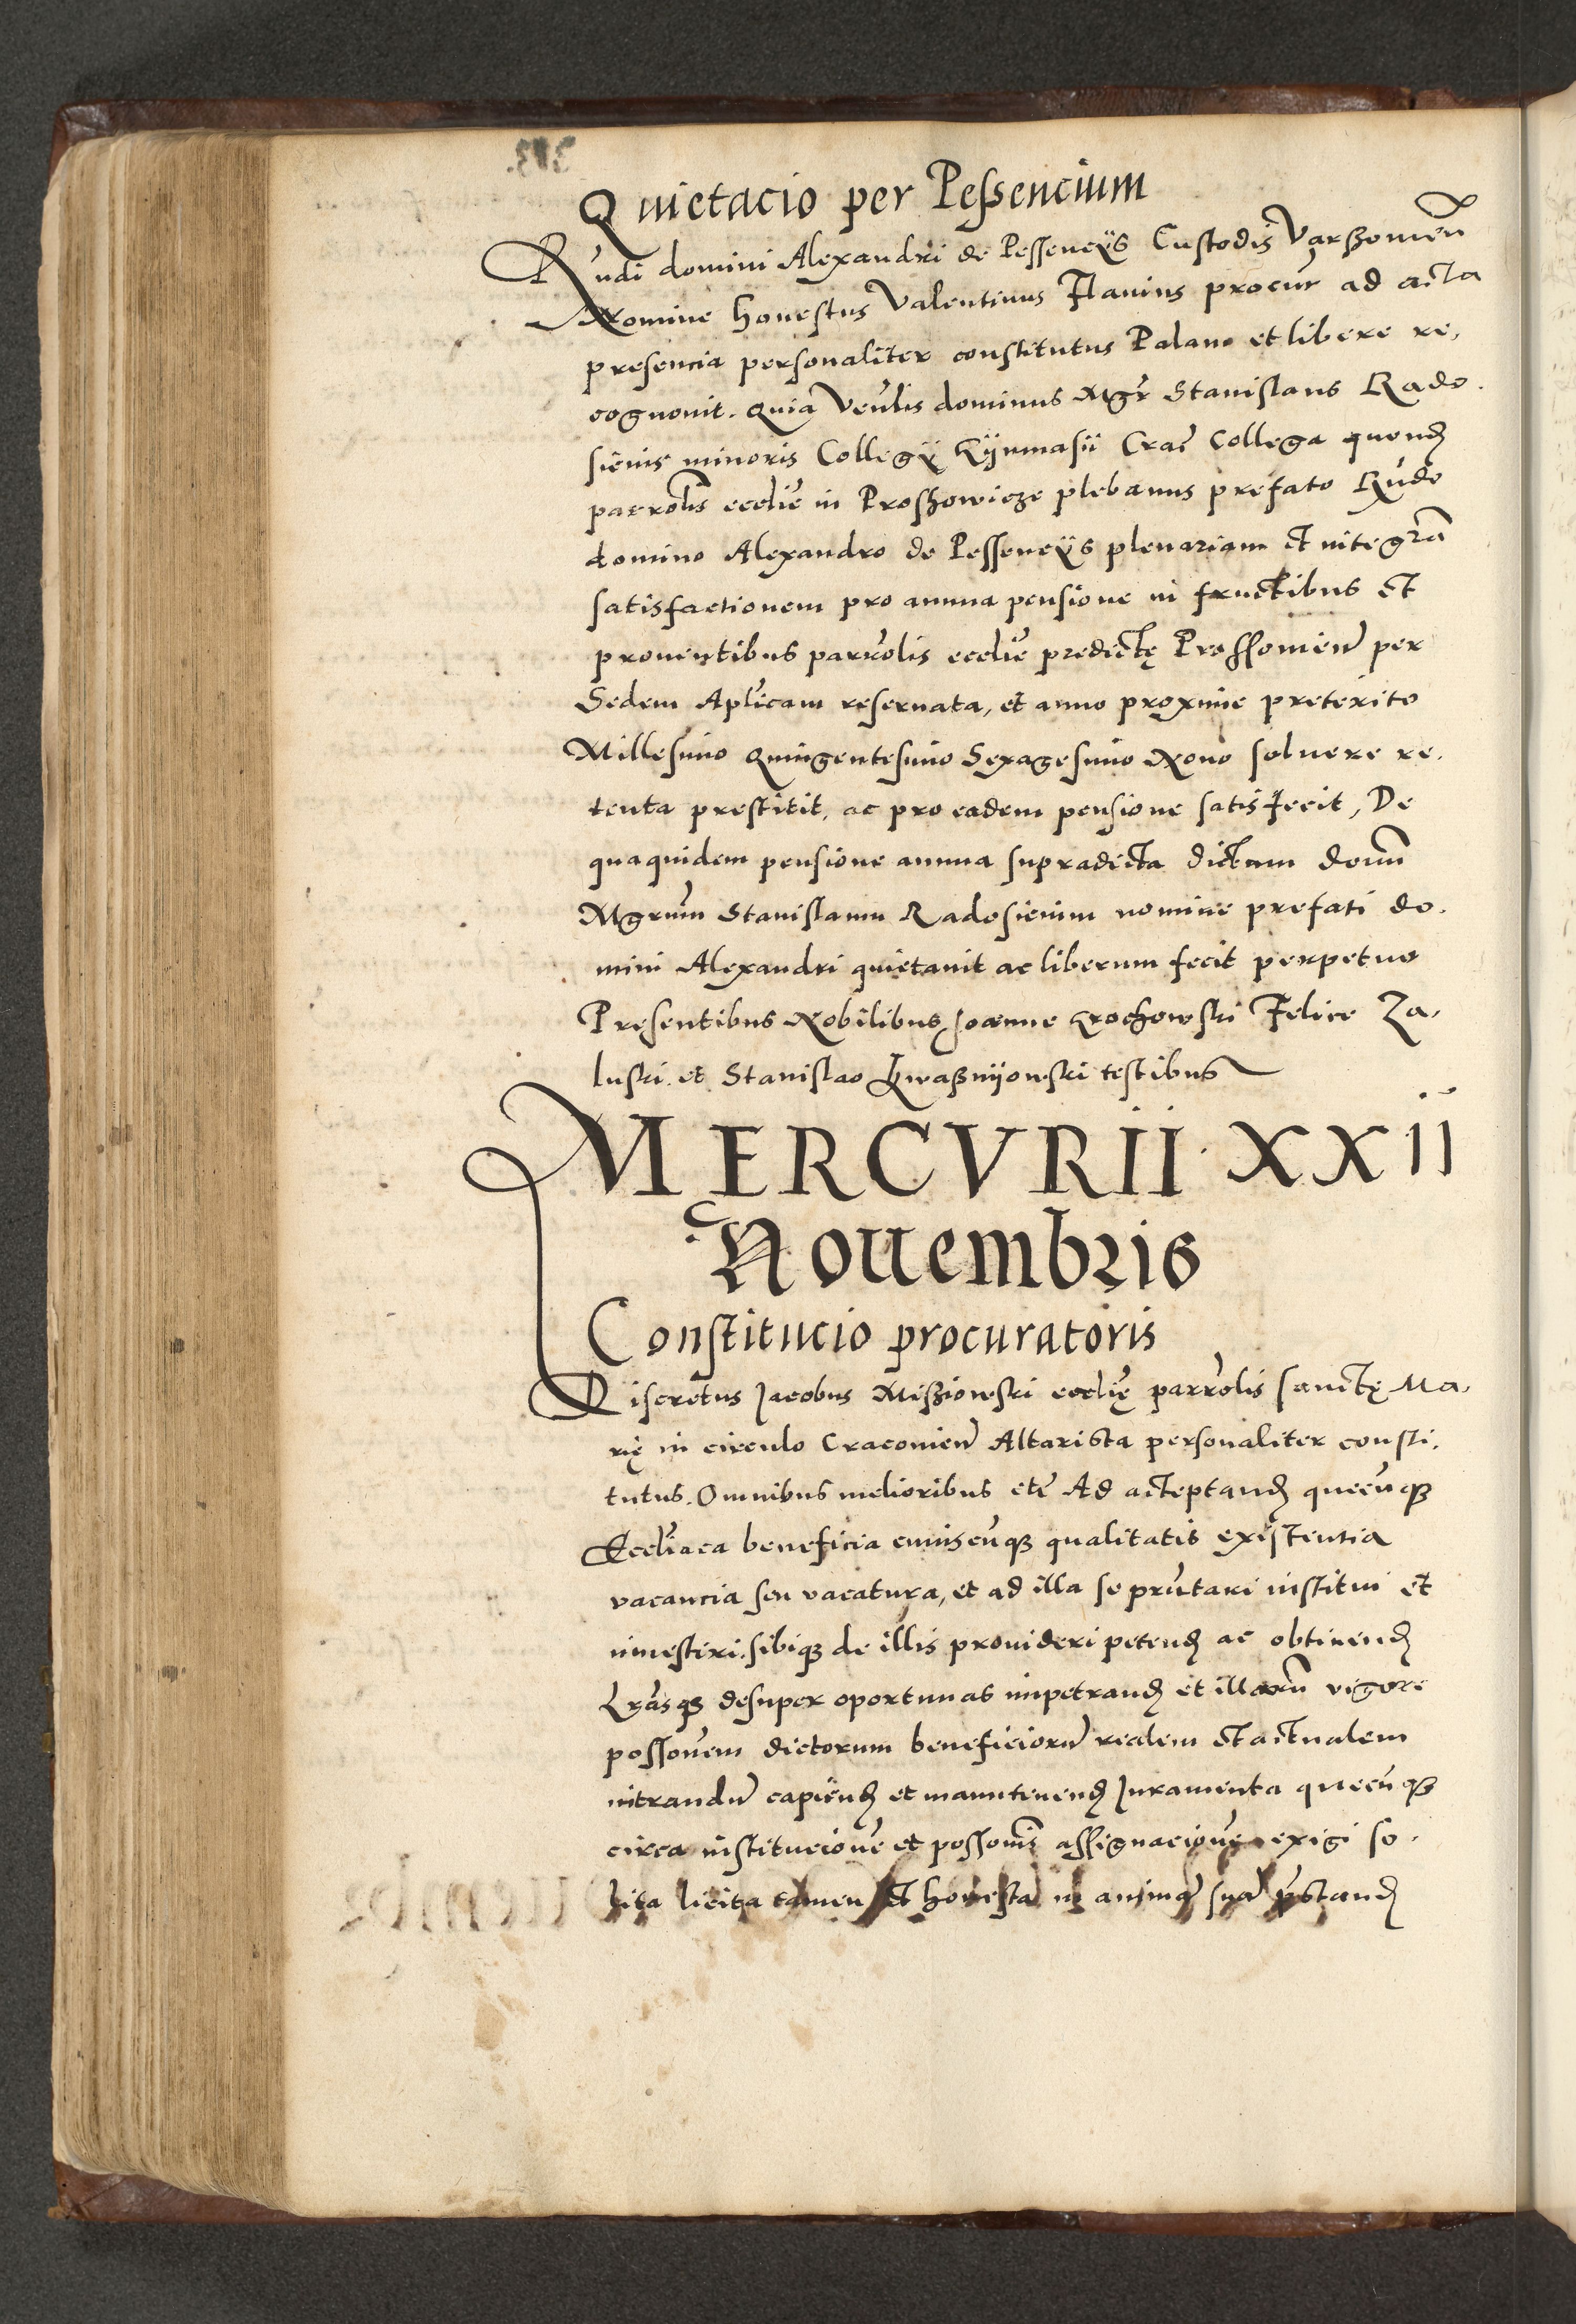 Quietacio per Peßencium
Rndi domini Alexandri de Pessencÿs Custodis Varßouien̄
Nomine honestus Valentinus Flauius procur ad acta
presencia personaliter constitutus Palam et libere re,
cognouit. Quia Venlis dominus Mgr Stanislaus Rado.
sienis minoris Collegÿ Gÿmnasii Crac̄ Collega quond
parrolis ecclie in Proshowicze plebanus prefato Rndo
domino Alexandro de Pessencÿs plenariam et integrā
satisfactionem pro annua pensione in fructibus et
prouentibus parrolis ecclie predictę Prossouien̄ per
Sedem Aplicam reseruata, et anno proxime preterito
Millesimo Quingentesimo Sexagesimo Nono soluere re.
tenta prestitit, ac pro eadem pensione satisfecit, De
quaquidem pensione annua supradicta dictum dominū
Mgrum Stanislaum Radosienim nomine prefati do.
mini Alexandri quietauit ac liberum fecit perpetuo
Presentibus Nobilibus Joanne Grochowski Felice Za,
luski et Stanislao Kwaßnÿowski testibus
MERCVRII XXII
Nouembris
Constitucio procuratoris
Discretus Jacobus Mißiowski ecclię parrolis sanctę Ma,
rię in circulo Cracouien̄ Altarista personaliter consti.
tutus. Omnibus melioribus etc̄ Ad acceptand quecūq3
Eccliaca beneficia cuiuscūq3 qualitatis existentia
vacancia seu vacatura, et ad illa se prn̄tari institui et
inuestiri. sibiq3 de illis prouideri petend ac obtinend
Lrasq3 desuper oportunas impetrand et illarū vigore
possonem dictorum beneficiorū realem et actualem
intrandū capiend et manutenend Juramenta quecūq3
circa institucionē et possonis assignacionē exigi so.
lita licita tamen et honesta in animā suā prestand